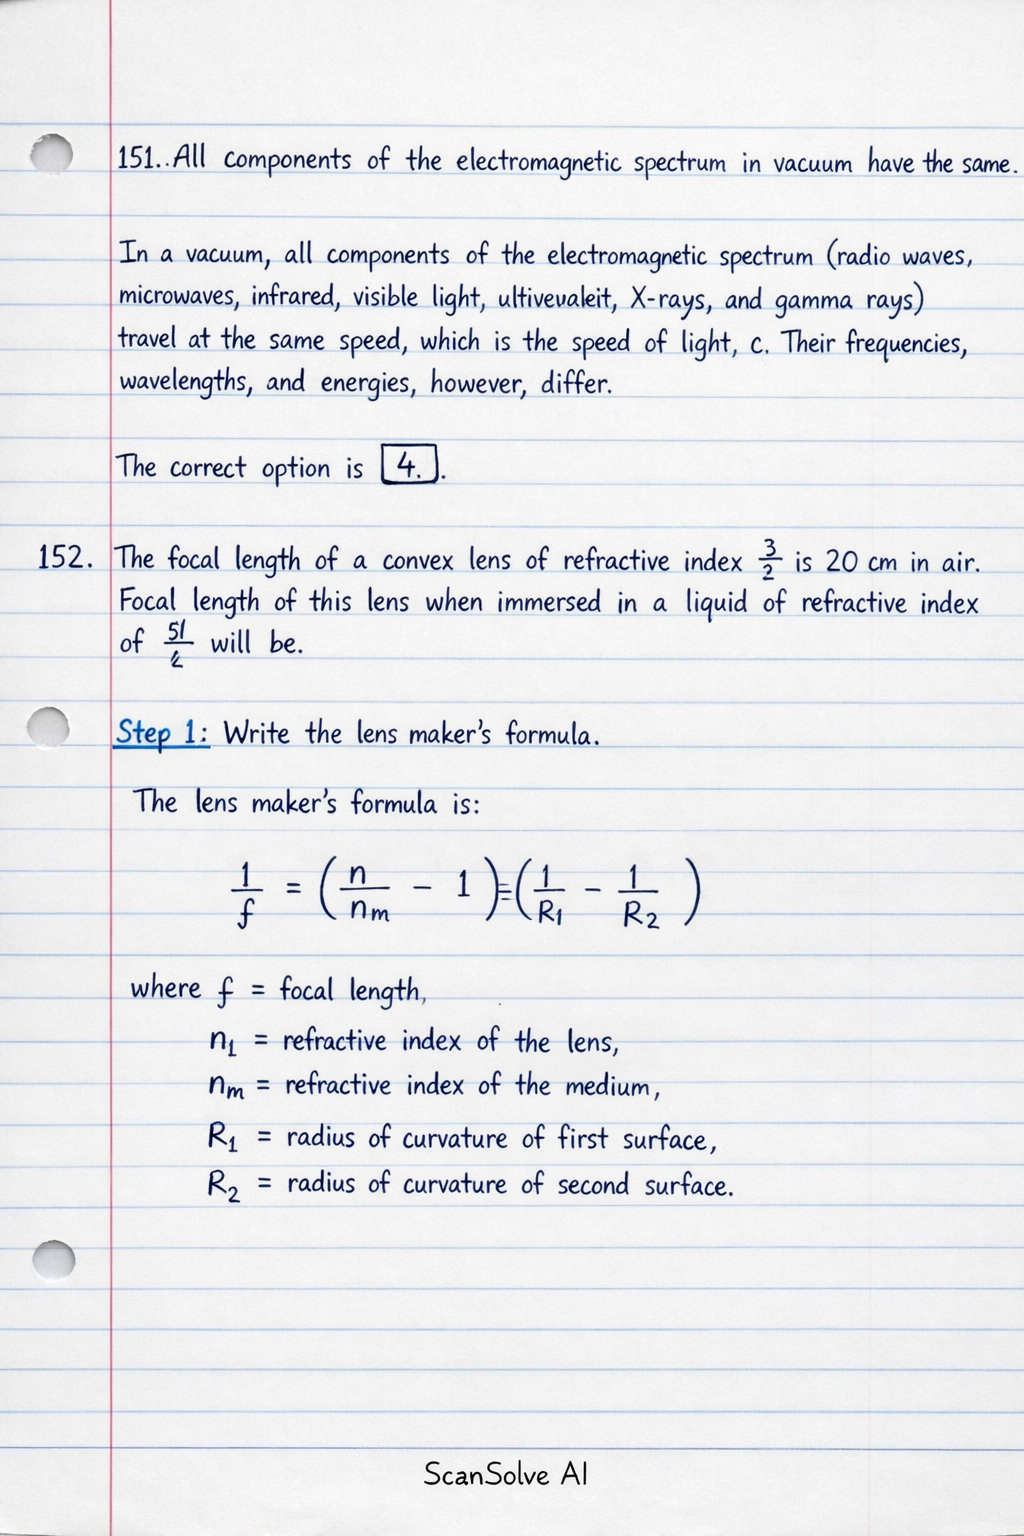 151..All components of the electromagnetic spectrum in vacuum have the same.
In a vacuum, all components of the electromagnetic spectrum (radio waves,
microwaves, infrared, visible light, ultivevaleit, X-rays, and gamma rays)
travel at the same speed, which is the speed of light, c. Their frequencies,
wavelengths, and energies, however, differ.
The correct option is 4..
152. The focal length of a convex lens of refractive index 3/2 is 20 cm in air.
Focal length of this lens when immersed in a liquid of refractive index
of will be.
Step 1: Write the lens maker's formula.
The lens maker's formula is:
1/f = (n/nm - 1)=(1/R1 - 1/R2)
where f = focal length,
n1 = refractive index of the lens,
nm = refractive index of the medium,
R1 = radius of curvature of first surface,
R2 = radius of curvature of second surface.
ScanSolve AI